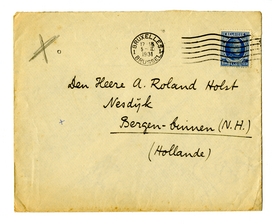 BRUXELLES
1931
BRUSSEL
Den Heere A. Roland Holst
Nesdijk
Bergen-binnen (N.H.)
(Hollande)